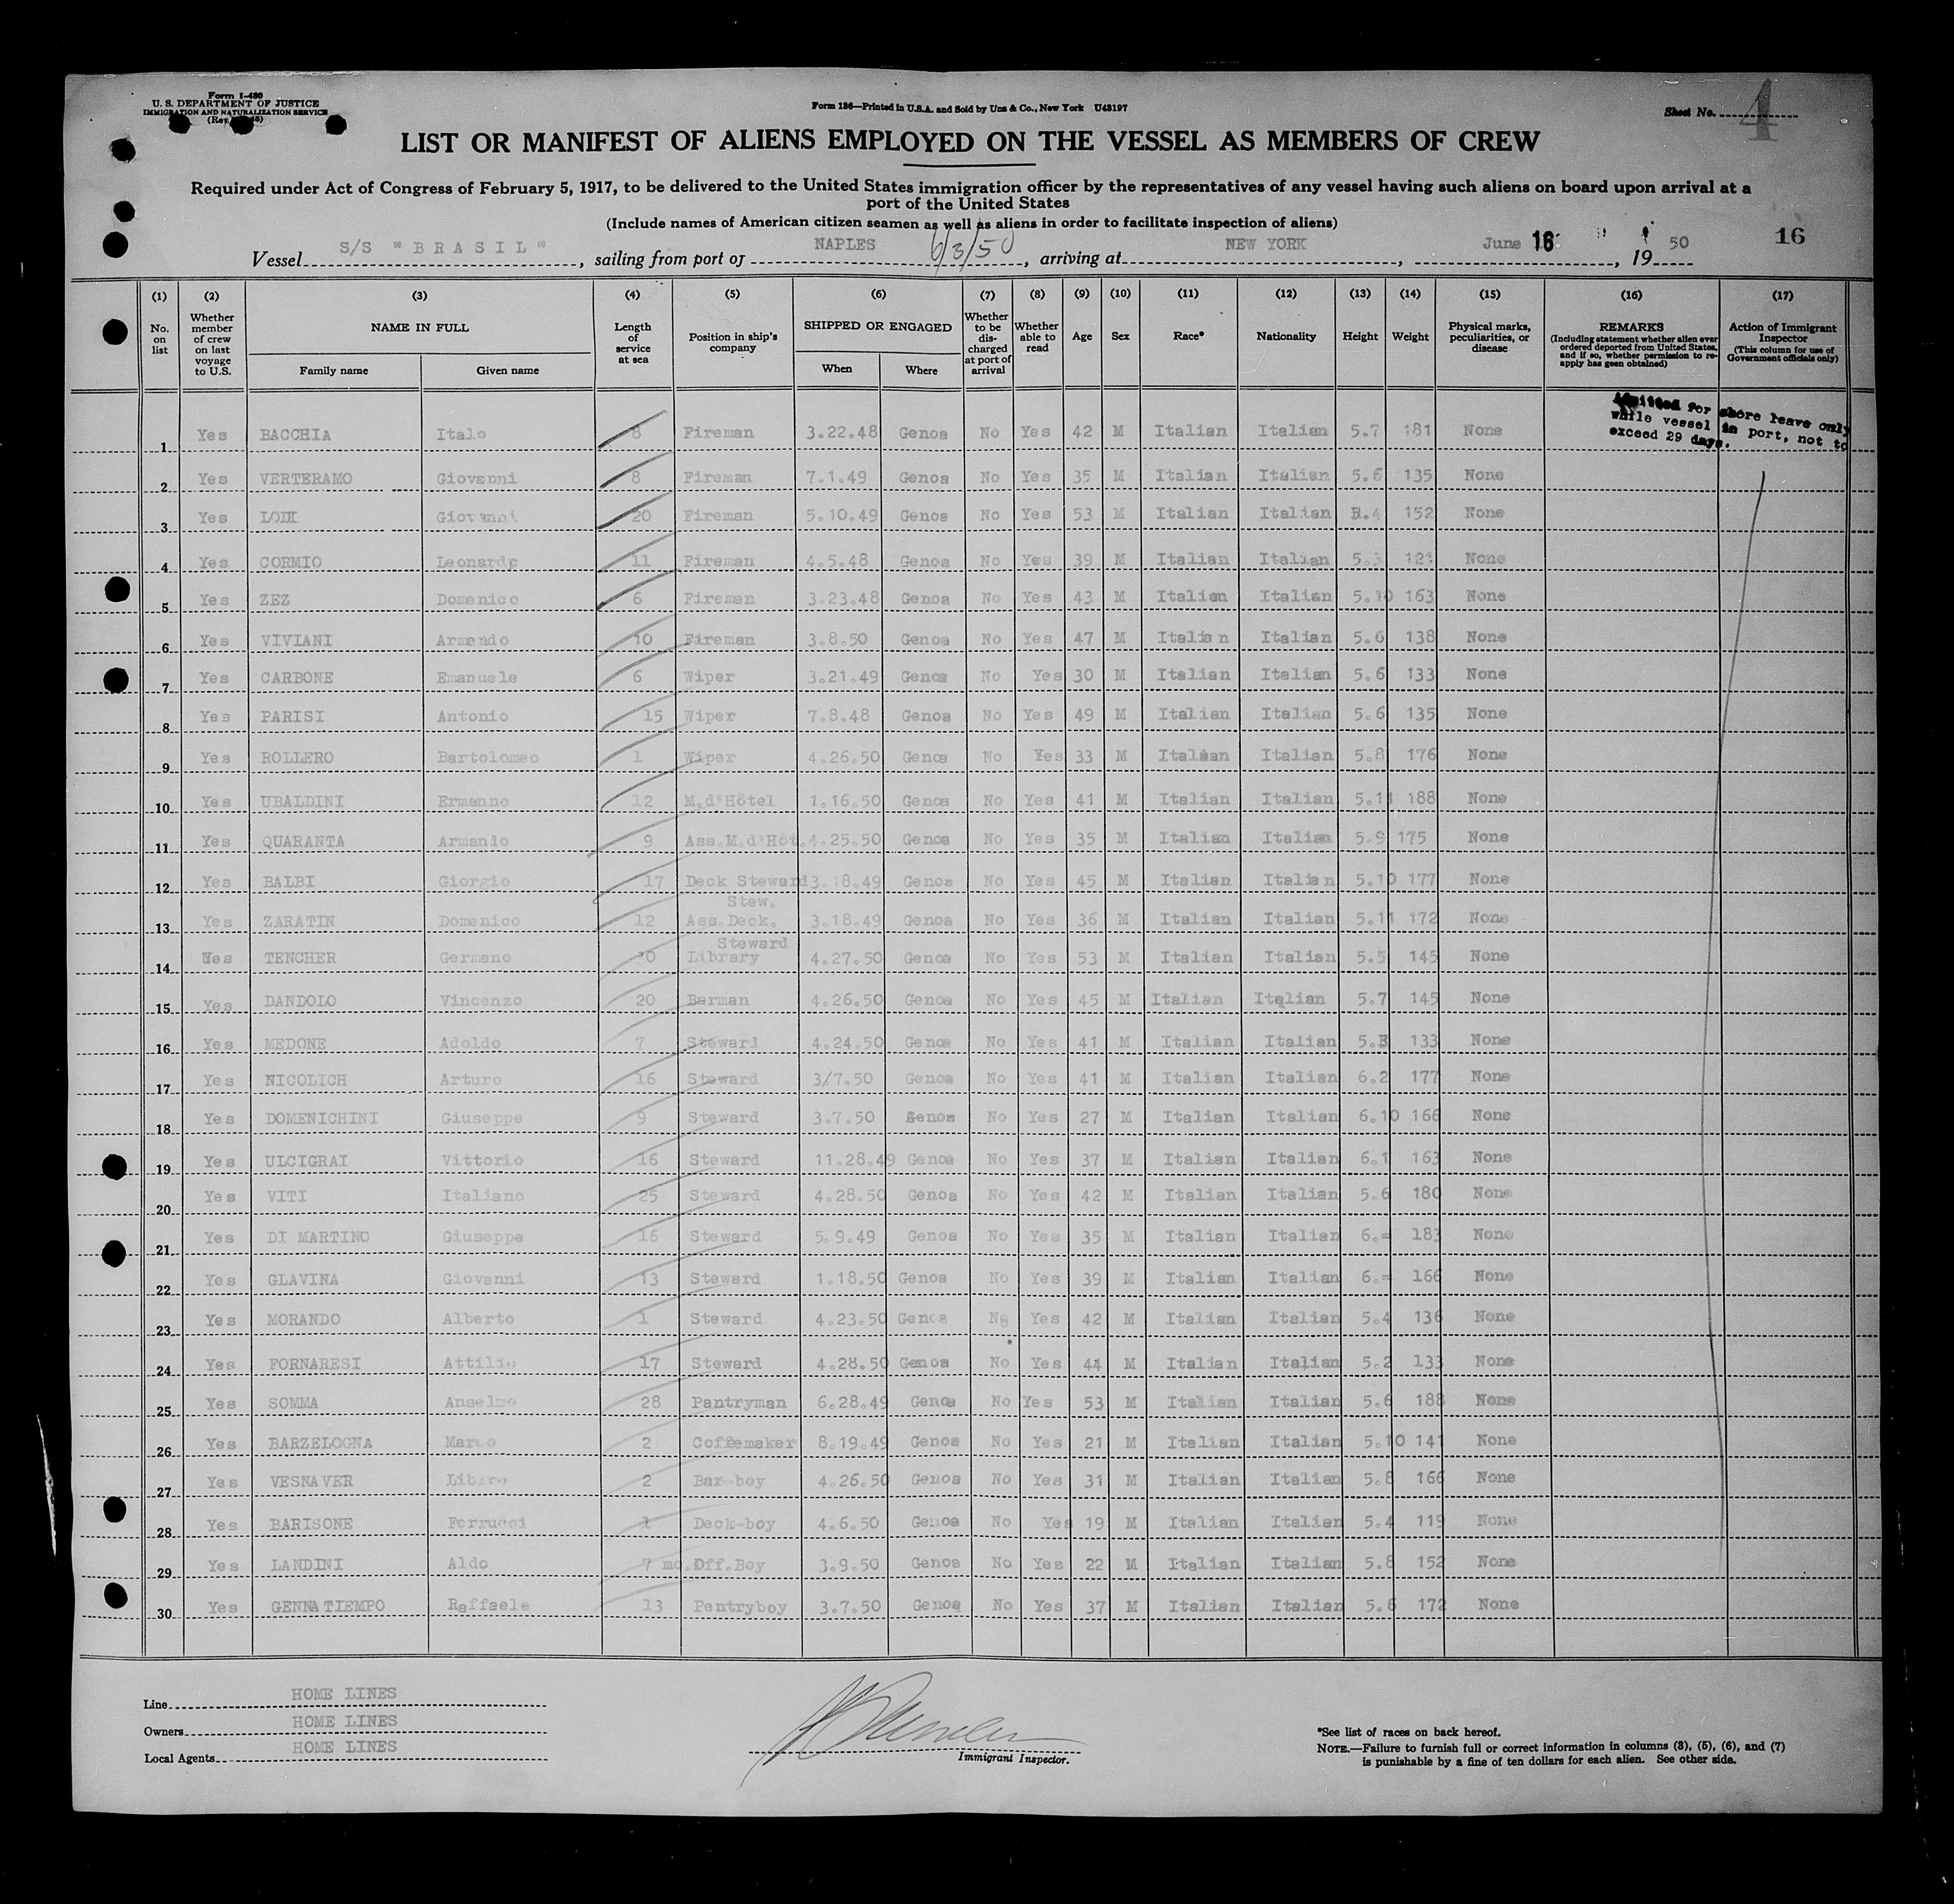 Form I-480
U. S. DEPARTMENT OF JUSTICE
IMMIGRATION AND NATURALIZATION SERVICE
Form 136—Printed in U.S.A. and Sold by Unz & Co., New York U43197
Sheet No. 4
LIST OR MANIFEST OF ALIENS EMPLOYED ON THE VESSEL AS MEMBERS OF CREW
Required under Act of Congress of February 5, 1917, to be delivered to the United States immigration officer by the representatives of any vessel having such aliens on board upon arrival at a
port of the United States
(Include names of American citizen seamen as well as aliens in order to facilitate inspection of aliens)
Vessel S/S "BRASIL", sailing from port of NAPLES 6/3/50, arriving at NEW YORK, June 16, 1950 16
(1) No. on list
(2) Whether member of crew on last voyage to U.S.
(3) NAME IN FULL Family name Given name
(4) Length of service at sea
(5) Position in ship's company
(6) SHIPPED OR ENGAGED When Where
(7) Whether to be discharged at port of arrival
(8) Whether able to read
(9) Age
(10) Sex
(11) Race*
(12) Nationality
(13) Height
(14) Weight
(15) Physical marks, peculiarities, or disease
(16) REMARKS (Including statement whether alien ever ordered deported from United States, and if so, whether permission to re-apply has been obtained)
(17) Action of Immigrant Inspector (This column for use of Government officials only)
Admitted for shore leave only
while vessel in port, not to
exceed 29 days.
1 Yes BACCHIA Italo 8 Fireman 3.22.48 Genoa No Yes 42 M Italian Italian 5.7 181 None
2 Yes VERTERAMO Giovanni 8 Fireman 7.1.49 Genoa No Yes 35 M Italian Italian 5.6 135 None
3 Yes LODI Giovanni 20 Fireman 5.10.49 Genoa No Yes 53 M Italian Italian 5.4 152 None
4 Yes CORMIO Leonardo 11 Fireman 4.5.48 Genoa No Yes 39 M Italian Italian None
5 Yes ZEZ Domenico 6 Fireman 3.23.48 Genoa No Yes 43 M Italian Italian 5.10 163 None
6 Yes VIVIANI Armando 10 Fireman 3.8.50 Genoa No Yes 47 M Italian Italian 5.6 138 None
7 Yes CARBONE Emanuele 6 Wiper 3.21.49 Genoa No Yes 30 M Italian Italian 5.6 133 None
8 Yes PARISI Antonio 15 Wiper 7.8.48 Genoa No Yes 49 M Italian Italian 5.6 135 None
9 Yes ROLLERO Bartolomeo 1 Wiper 4.26.50 Genoa No Yes 33 M Italian Italian 5.8 176 None
10 Yes UBALDINI Ermanno 12 M.d'Hôtel 1.16.50 Genoa No Yes 41 M Italian Italian 5.11 188 None
11 Yes QUARANTA Armando 9 Ass.M.d'Hôt. 4.25.50 Genoa No Yes 35 M Italian Italian 5.9 175 None
12 Yes BALBI Giorgio 17 Deck Steward 3.18.49 Genoa No Yes 45 M Italian Italian 5.10 177 None
13 Yes ZARATIN Domenico 12 Ass.Deck. Stew. 3.18.49 Genoa No Yes 36 M Italian Italian 5.11 172 None
14 Yes TENCHER Germano Library Steward 4.27.50 Genoa No Yes 53 M Italian Italian 5.5 145 None
15 Yes DANDOLO Vincenzo 20 Barman 4.26.50 Genoa No Yes 45 M Italian Italian 5.7 145 None
16 Yes MEDONE Adoldo 7 Steward 4.24.50 Genoa No Yes 41 M Italian Italian 133 None
17 Yes NICOLICH Arturo 16 Steward 3/7.50 Genoa No Yes 41 M Italian Italian 6.2 177 None
18 Yes DOMENICHINI Giuseppe 9 Steward 3.7.50 Genoa No Yes 27 M Italian Italian 6.10 166 None
19 Yes ULCIGRAI Vittorio 16 Steward 11.28.49 Genoa No Yes 37 M Italian Italian 6.1 163 None
20 Yes VITI Italiano 25 Steward 4.28.50 Genoa No Yes 42 M Italian Italian 5.6 180 None
21 Yes DI MARTINO Giuseppe 16 Steward 5.9.49 Genoa No Yes 35 M Italian Italian 6.= 183 None
22 Yes GLAVINA Giovanni 13 Steward 1.18.50 Genoa No Yes 39 M Italian Italian 6.= 166 None
23 Yes MORANDO Alberto 1 Steward 4.23.50 Genoa No Yes 42 M Italian Italian 5.4 136 None
24 Yes FORNARESI Attilio 17 Steward 4.28.50 Genoa No Yes 44 M Italian Italian 5.2 133 None
25 Yes SOMMA Anselmo 28 Pantryman 6.28.49 Genoa No Yes 53 M Italian Italian 5.6 188 None
26 Yes BARZELOGNA Marco 2 Coffemaker 8.19.49 Genoa No Yes 21 M Italian Italian 5.10 141 None
27 Yes VESNAVER Libero 2 Bar-boy 4.26.50 Genoa No Yes 31 M Italian Italian 5.8 166 None
28 Yes BARISONE Ferrucci 1 Deck-boy 4.6.50 Genoa No Yes 19 M Italian Italian 5.4 119 None
29 Yes LANDINI Aldo 7 mo. Off.Boy 3.9.50 Genoa No Yes 22 M Italian Italian 5.8 152 None
30 Yes GENNATIEMPO Raffaele 13 Pentryboy 3.7.50 Genoa No Yes 37 M Italian Italian 5.6 172 None
Line HOME LINES
Owners HOME LINES
Local Agents HOME LINES
Immigrant Inspector.
*See list of races on back hereof.
NOTE.—Failure to furnish full or correct information in columns (3), (5), (6), and (7)
is punishable by a fine of ten dollars for each alien. See other side.